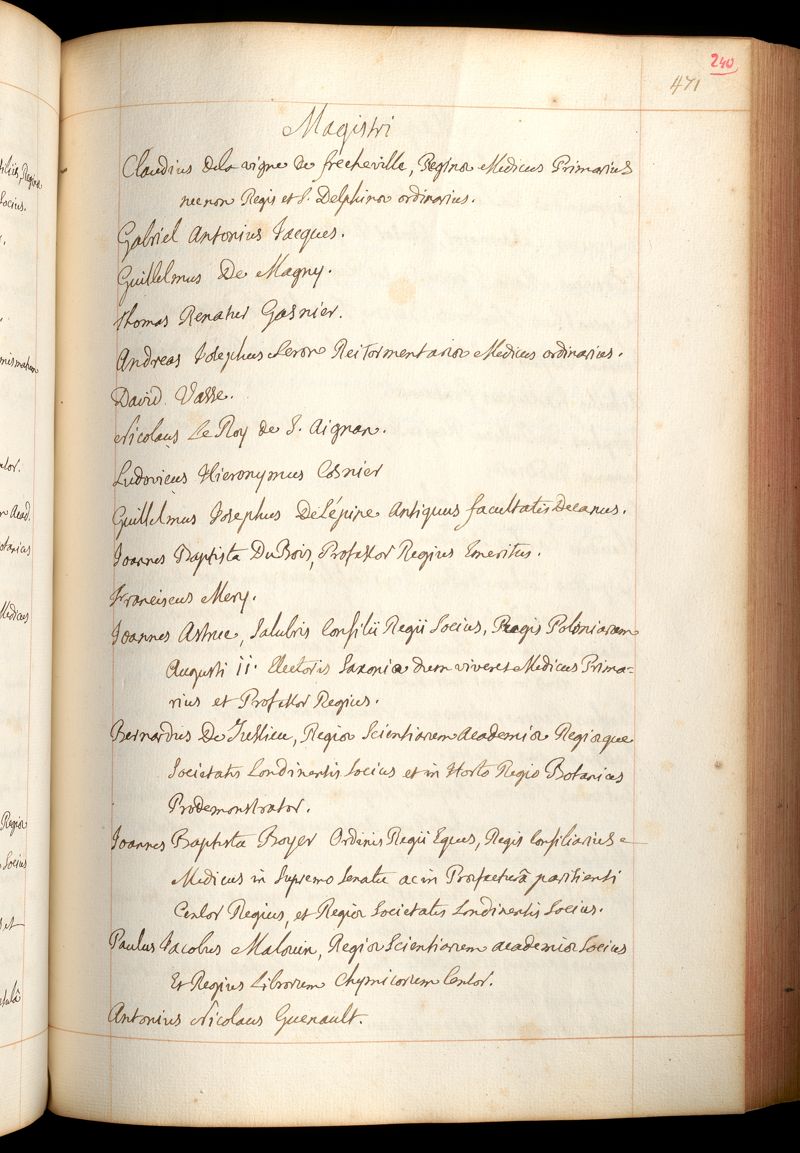 240
471
Magistri
Claudius de la vigne de frecheville, Reginæ Medicus Primarius
necnon Regis et S. Delphinæ ordinarius.
Gabriel Antonius Jacques.
Guillelmus De Magny.
Thomas Renatus Gasnier.
Andreas Josephus Leron Rei Tormentariæ Medicus ordinarius.
David Vasse.
Nicolaus Le Roy de S. Aignan.
Ludovicus Hieronymus Cosnier
Guillelmus Josephus De Lépine Antiquus facultatis Decanus.
Joannes Baptista Du Bois, Professor Regius Emeritus.
Franciscus Mery.
Joannes Astruc, Salubris Consilii Regii Socius, Regis Poloniarum
Augusti ii. Electoris Saxoniæ dum viveret Medicus Prima=
rius et Professor Regius.
Bernardus De Jussieu, Regiæ Scientiarum Academiæ Regiæque
Societatis Londinensis Socius et in Horto Regio Botanices
Prodemonstrator.
Joannes Baptista Boyer Ordinis Regii Eques, Regis Consiliarius
Medicus in Supremo Senatu ac in Præfecturâ parisiensi
Censor Regius, et Regiæ Societatis Londinensis Socius.
Paulus Jacobus Malouin, Regiæ Scientiarum academiæ Socius
Et Regius Librorum Chymicorum Censor.
Antonius Nicolaus Guenault.